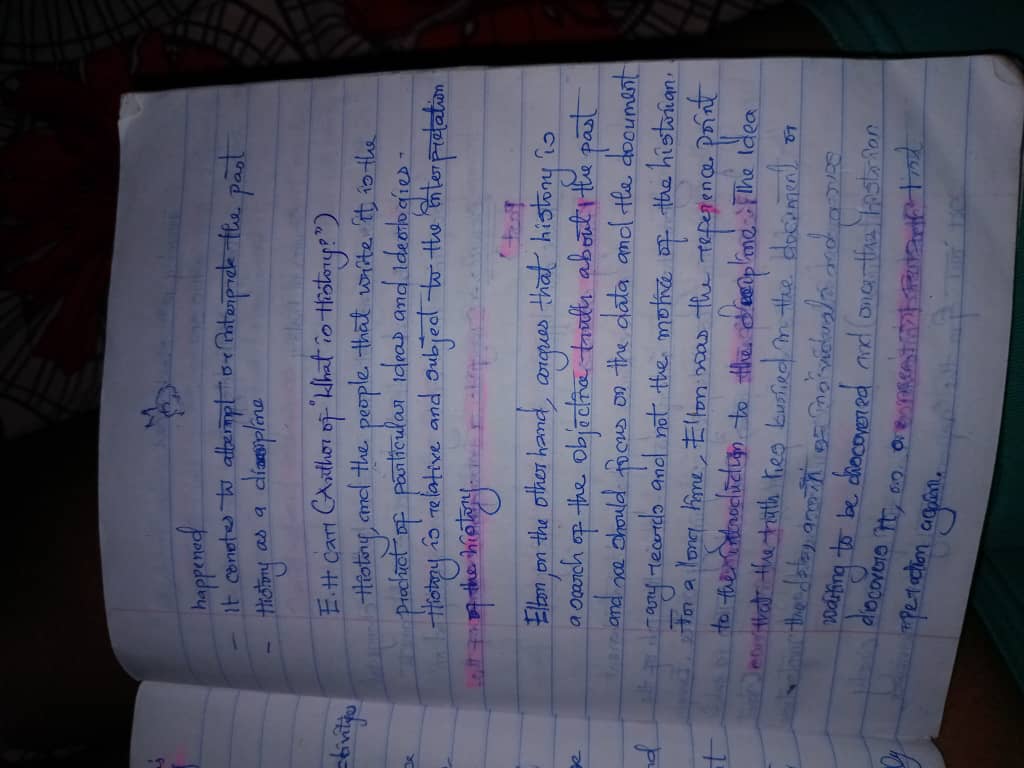 happened
- It conotes to attempt or interprete the past
- History as a discipline
E.H Carr (Author of "What is History?")
History, and the people that write it, is the
product of particular ideas and ideologies.
History is relative and subject to the interpretation
of the history.
Elton, on the other hand, argues that history is
a search of the objective truth about the past
and we should focus on the data and the document
-ary records and not the motive of the historian.
For a long time, Elton was the reference point
to the introduction to the discipline. The idea
that the truth lies buried in the document or
the of individuals and
waiting to be discovered and once the historian
discovers it, no
operation again.
ctivities
nd